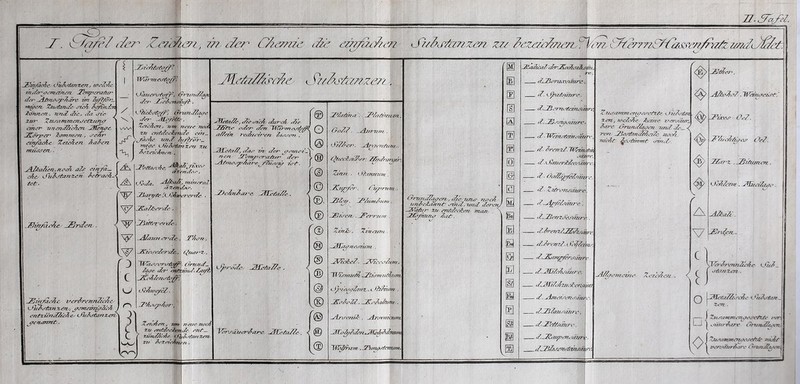 II. Tafel.
I. Tafel der Zeichen, in der Chemie die einfachen Substanzen zu bezeichnen. Von Herrn Hassenfratz und Adet.
Einfache Substanzen, welche
in der gemeinen Temperatur
der Atmosphäre im luftför-
migen Zustande sich befinden
können, und die, da sie
zur Zusammensetzung
einer unendlichen Menge
Körper kommen, sehr
einfache Zeichen haben
müssen.
Lichtstoff.
Wärmestoff.
Sauerstoff, Grundlage
der Lebensluft.
Stickstoff, Grundlage
der
Zeichen, um neue noch
zu entdeckende ein-
fache und luftför-
mige Substanzen zu
bezeichnen.
Alkalien, noch als einfa-
che Substanzen betrach-
tet.
Pottasche. Alkali, fixes
Soda. Alkali, mineral
Einfache Erden.
Baryte. Schwererde.
Kalkerde.
Bittererde.
Alaunerde. Thon.
Kieselerde. Quarz.
Einfache verbrennliche
Substanzen, gemeiniglich
entzündliche Substanzen
genannt.
Wasserstoff, Grund-
lage der entzünd. Luft.
Kohlenstoff.
Schwefel.
Phosphor.
Zeichen, um neue noch
zu entdeckende ent-
zündliche Substanzen
zu bezeichnen.
Metallische Substanzen.
Metalle, die sich durch die
Hitze oder den Wärmestoff
allein
Metall, das in der gemei-
nen Temperatur der
Atmosphäre flüssig ist.
Dehnbare Metalle.
Spröde Metalle.
Versäuerbare Metalle.
Platina. Platinum.
Gold. Aurum.
Silber. Argentum.
Quecksilber. Hydrargyr.
Zinn. Stannum.
Kupfer. Cuprum.
Bley. Plumbum.
Eisen. Ferrum.
Zink. Zincum.
Magnesium.
Nickel. Niccolum.
Wismuth. Bismuthum.
Spiesglanz. Stibium.
Kobold. Kobaltum.
Arsenik. Arsenicum.
Molybdän. Molybdänum.
Wolfram. Tungstenum.
Grundlagen, die uns noch
unbekannt sind, und deren
Natur zu entdecken man
Hoffnung hat.
Radical der Kochsalzsäure.
d. Boraxsäure.
d. Spatsäure.
d. Bernsteinsäure.
d. Essigsäure.
d. Weinsteinsäure.
d. brenzl. Weinstein
säure.
d. Sauerkleesäure.
d. Galläpfelsäure.
d. Zitronensäure.
d. Apfelsäure.
d. Benzoesäure.
d. brenzl. Holzsäure.
d. brenzl. Schleimsäure.
d. Kamphersäure.
d. Milchsäure.
d. Milchzuckersäure.
d. Ameisensäure.
d. Blausäure.
d. Fettsäure.
d. Raupensäure.
d. Blasensteinsäure.
Zusammengesetzte Substan-
zen, welche keine versäuer-
bare Grundlagen und de-
ren Bestandtheile noch
nicht bestimmt sind.
Allgemeine Zeichen.
Ether.
Alkohol. Weingeist.
Fixes Oel.
Flüchtiges Oel.
Harz. Bitumen.
Schleim. Mucilago.
Alkali.
Erden.
Verbrennliche Sub-
stanzen.
Metallische Substan-
zen.
Zusammengesetzte ver-
säuerbare Grundlagen.
Zusammengesetzte nicht
versäuerbare Grundlagen.